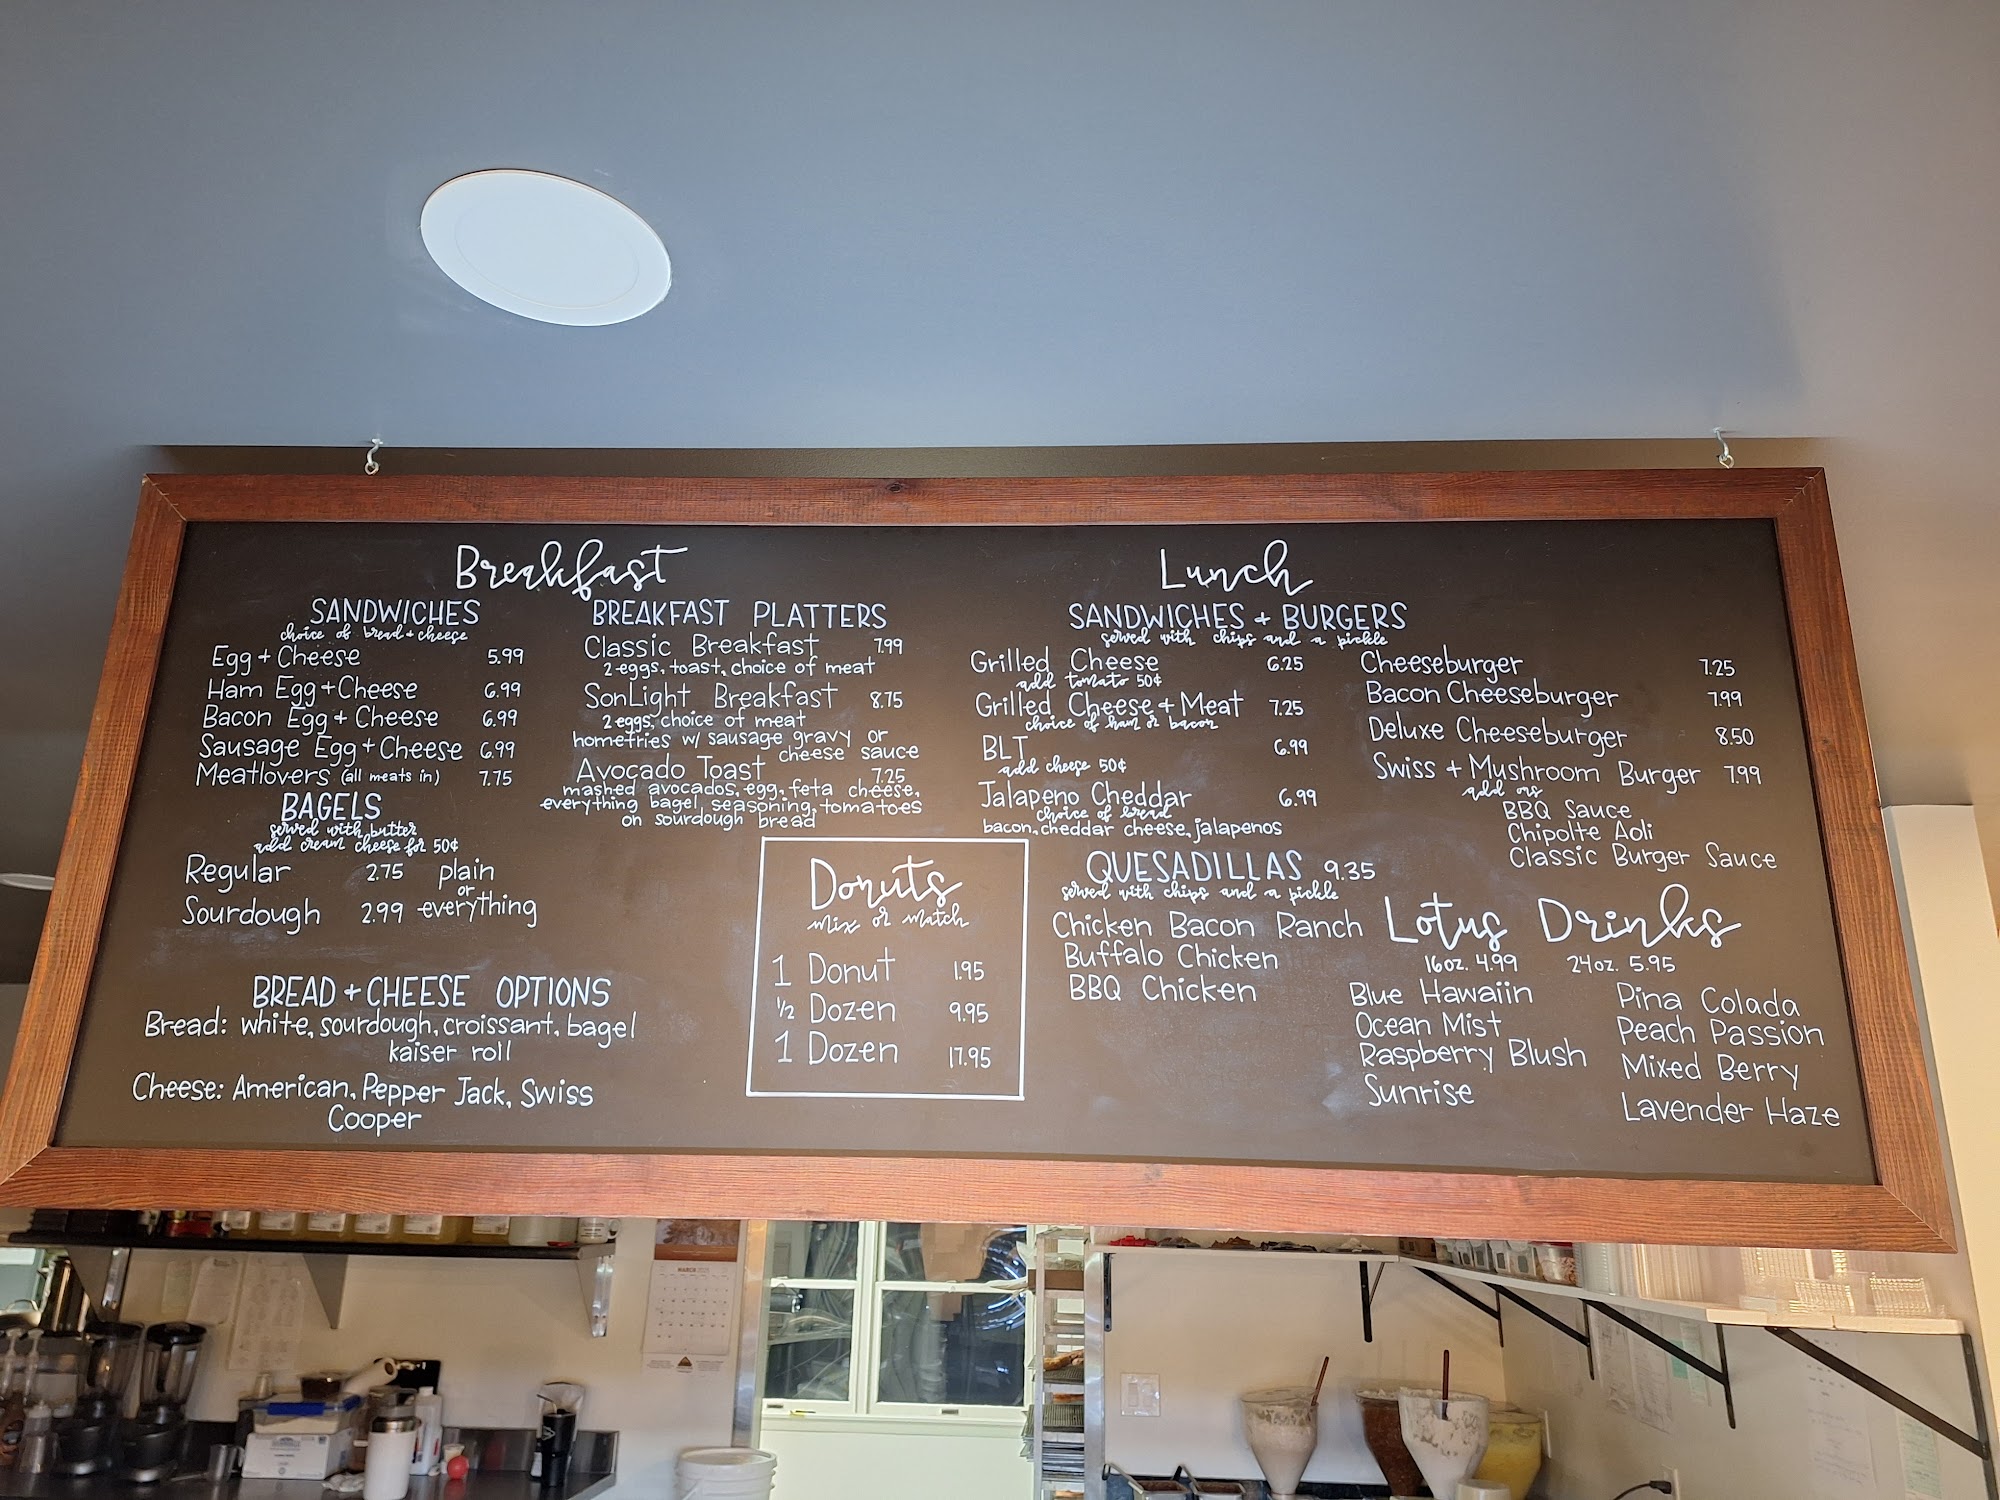 Breakfast
SANDWICHES
choice of bread + cheese
Egg + Cheese 5.99
Ham Egg + Cheese 6.99
Bacon Egg + Cheese 6.99
Sausage Egg + Cheese 6.99
Meatlovers (all meats in) 7.75
BAGELS
served with butter
add cream cheese for 50¢
Regular 2.75 plain
or
Sourdough 2.99 everything
BREAD + CHEESE OPTIONS
Bread: white, sourdough, croissant, bagel
kaiser roll
Cheese: American, Pepper Jack, Swiss
Cooper
BREAKFAST PLATTERS
Classic Breakfast 7.99
2 eggs, toast, choice of meat
SonLight Breakfast 8.75
2 eggs, choice of meat
homefries w/ sausage gravy or
cheese sauce
Avocado Toast 7.25
mashed avocados, egg, feta cheese,
everything bagel, seasoning, tomatoes
on sourdough bread
Donuts
mix or match
1 Donut 1.95
1/2 Dozen 9.95
1 Dozen 17.95
Lunch
SANDWICHES + BURGERS
served with chips and a pickle
Grilled Cheese 6.25
add tomato 50¢
Grilled Cheese + Meat 7.25
choice of ham or bacon
BLT 6.99
add cheese 50¢
Jalapeno Cheddar 6.99
choice of bread
bacon, cheddar cheese, jalapenos
Cheeseburger 7.25
Bacon Cheeseburger 7.99
Deluxe Cheeseburger 8.50
Swiss + Mushroom Burger 7.99
add on
BBQ Sauce
Chipolte Aoli
Classic Burger Sauce
QUESADILLAS 9.35
served with chips and a pickle
Chicken Bacon Ranch
Buffalo Chicken
BBQ Chicken
Lotus Drinks
16oz. 4.99 24oz. 5.95
Blue Hawaiin
Ocean Mist
Raspberry Blush
Sunrise
Pina Colada
Peach Passion
Mixed Berry
Lavender Haze
MARCH